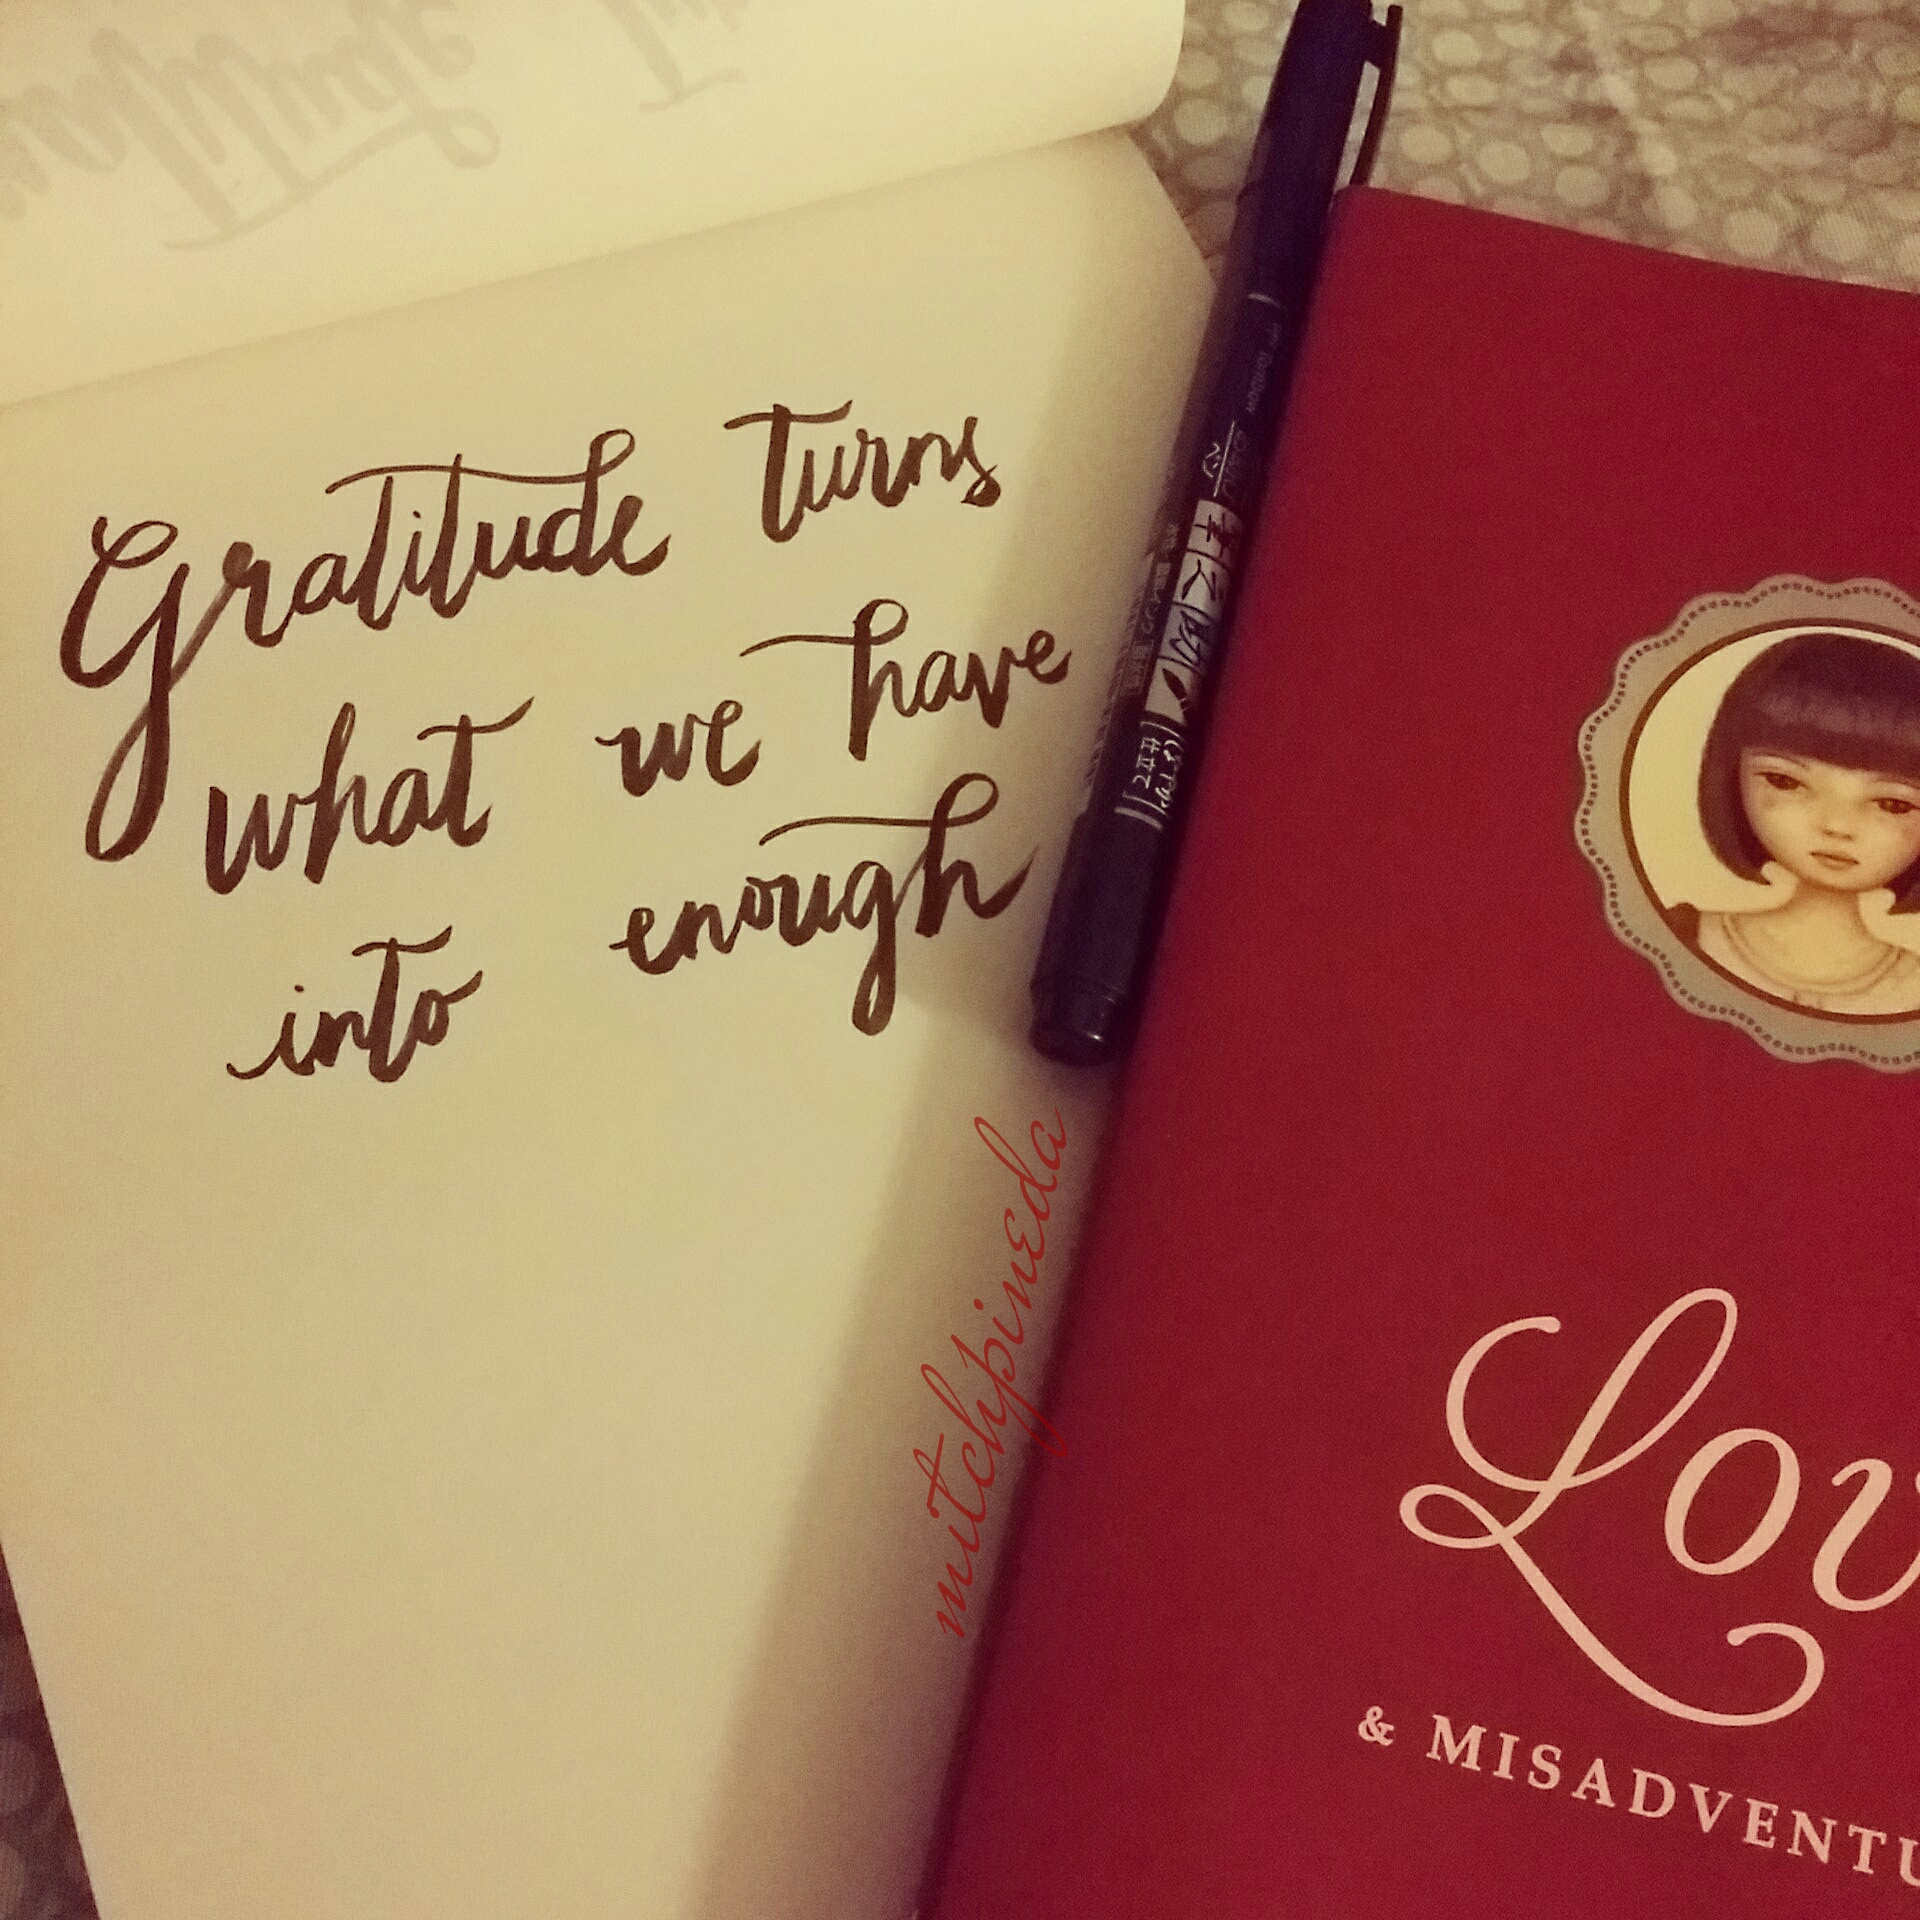 Gratitude turns
what we have
into enough
mitchpineda
Lov
& MISADVENTU